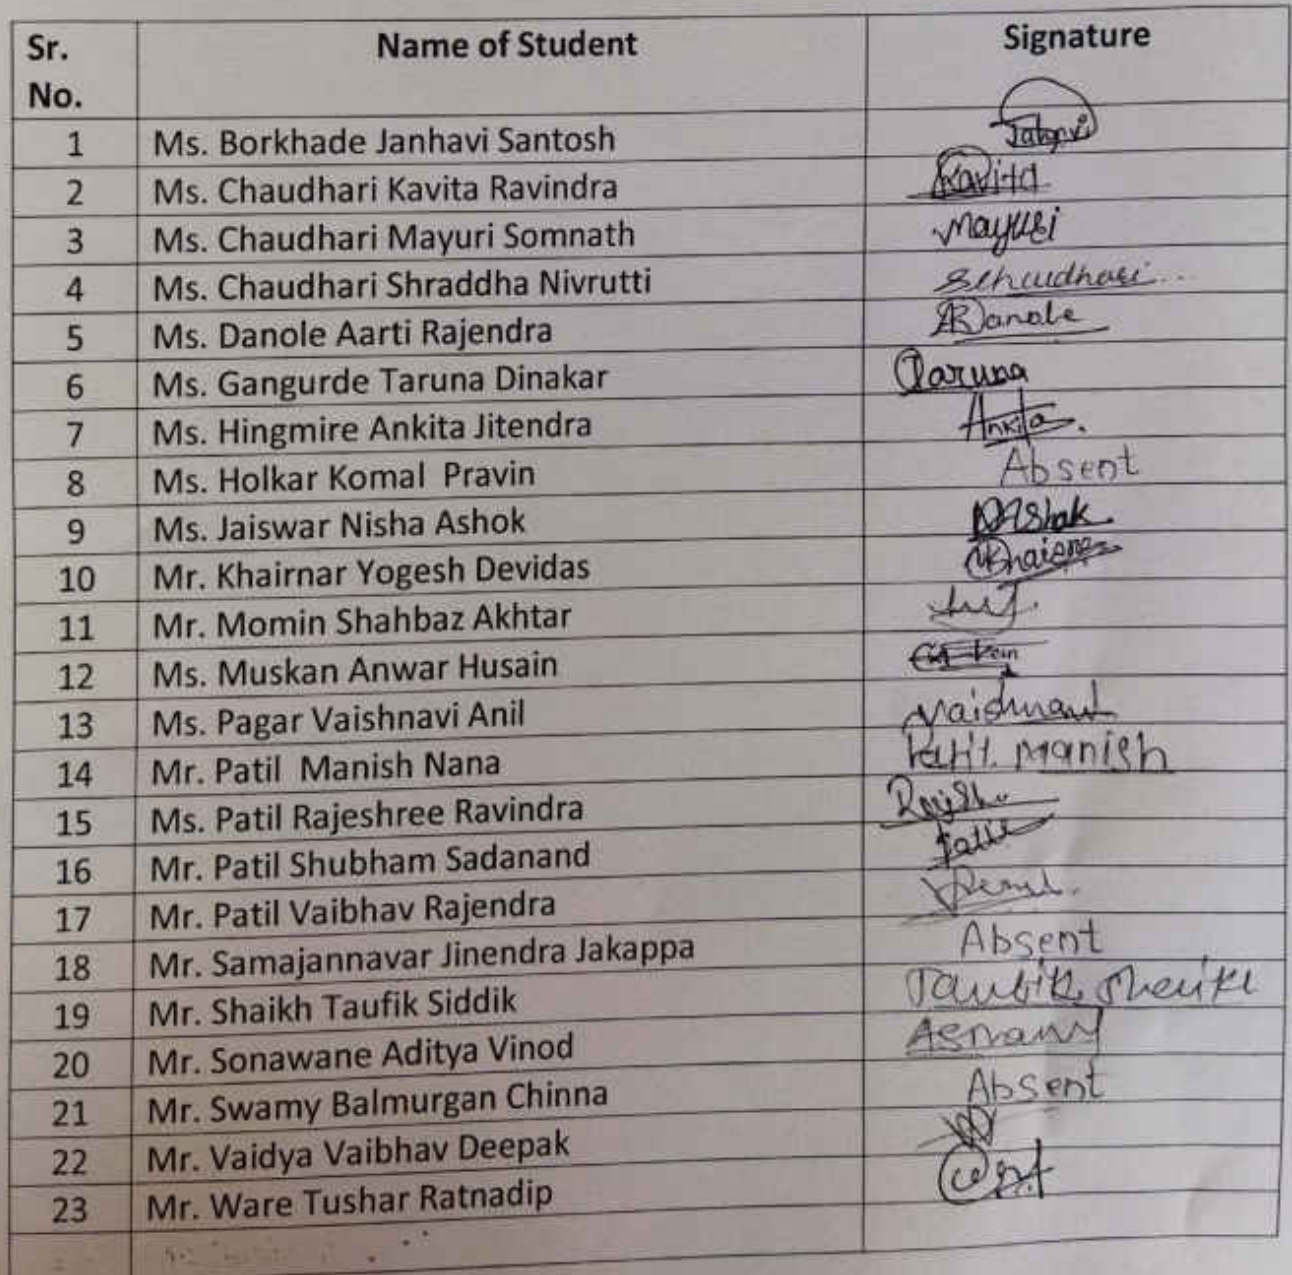 Sr. No. Name of Student Signature
1 Ms. Borkhade Janhavi Santosh
2 Ms. Chaudhari Kavita Ravindra Kavita
3 Ms. Chaudhari Mayuri Somnath Mayuri
4 Ms. Chaudhari Shraddha Nivrutti
5 Ms. Danole Aarti Rajendra ARDanole
6 Ms. Gangurde Taruna Dinakar Taruna
7 Ms. Hingmire Ankita Jitendra Ankita.
8 Ms. Holkar Komal Pravin Absent
9 Ms. Jaiswar Nisha Ashok
10 Mr. Khairnar Yogesh Devidas
11 Mr. Momin Shahbaz Akhtar
12 Ms. Muskan Anwar Husain
13 Ms. Pagar Vaishnavi Anil Vaishnavi
14 Mr. Patil Manish Nana Patil Manish
15 Ms. Patil Rajeshree Ravindra
16 Mr. Patil Shubham Sadanand Patil
17 Mr. Patil Vaibhav Rajendra
18 Mr. Samajannavar Jinendra Jakappa Absent
19 Mr. Shaikh Taufik Siddik
20 Mr. Sonawane Aditya Vinod
21 Mr. Swamy Balmurgan Chinna Absent
22 Mr. Vaidya Vaibhav Deepak
23 Mr. Ware Tushar Ratnadip